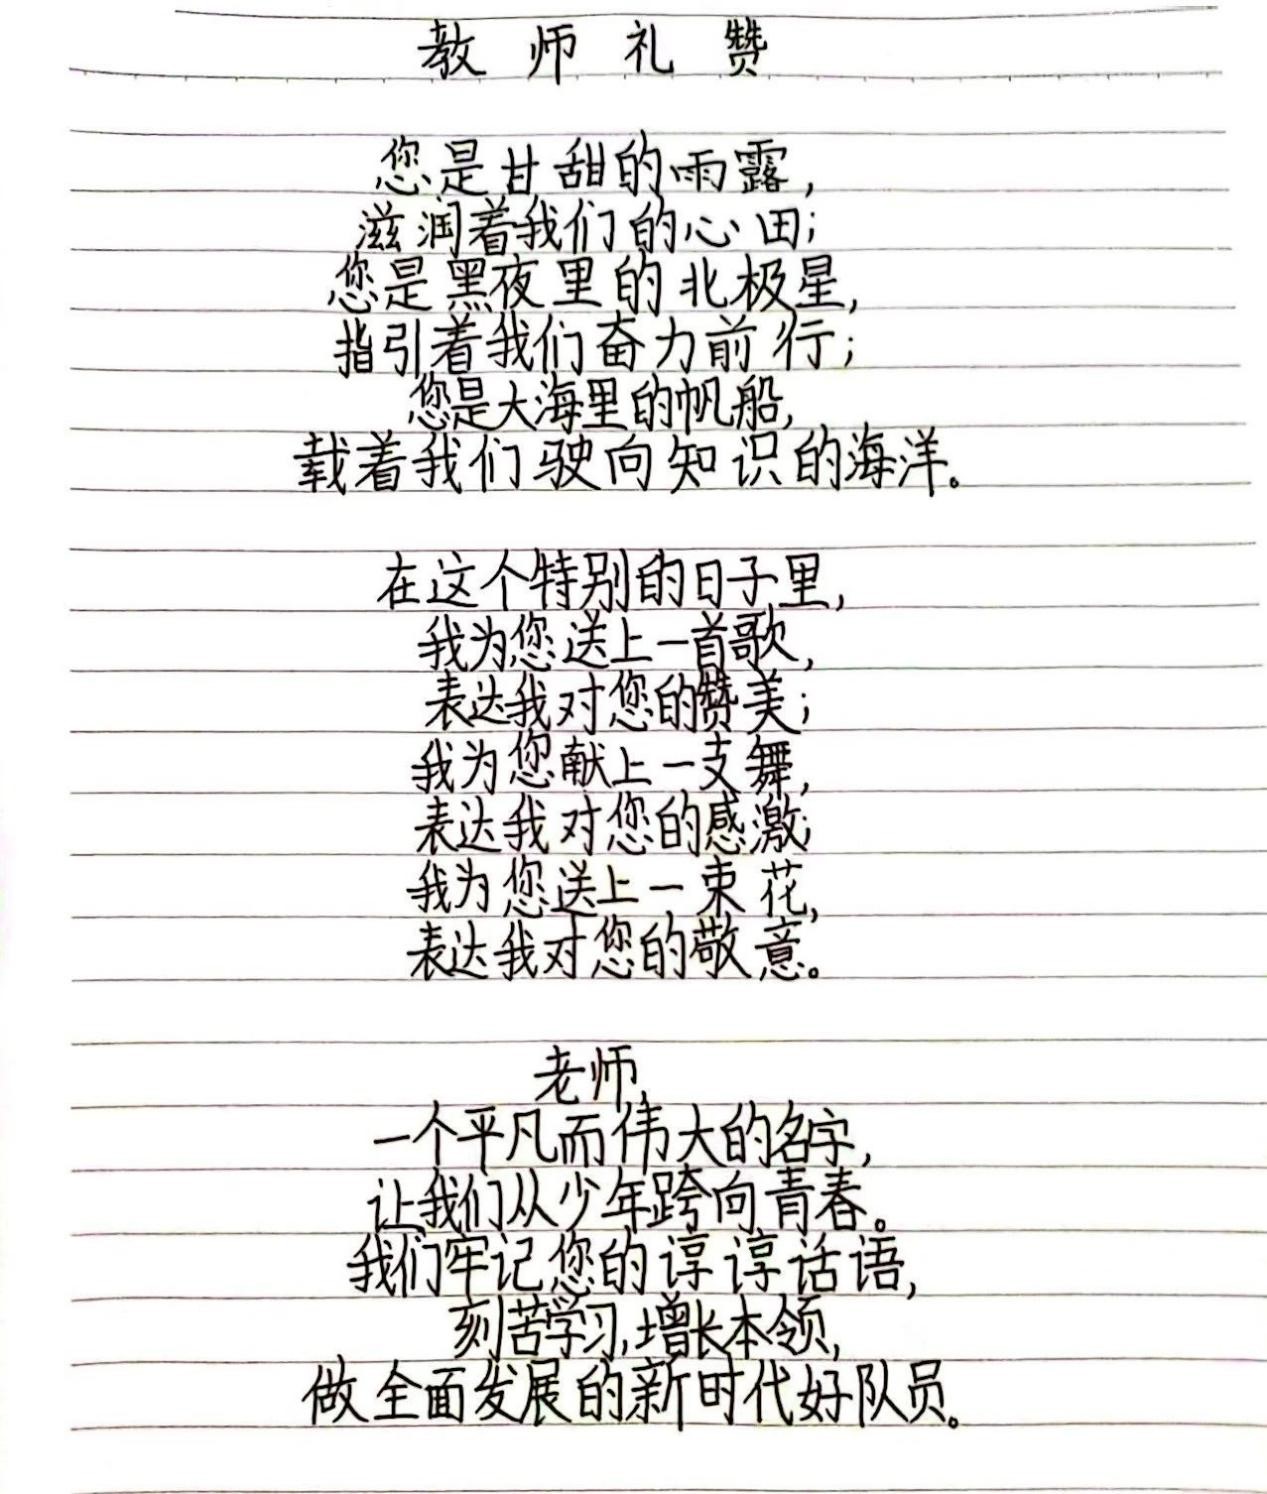 教师礼赞
您是甘甜的雨露,
滋润着我们的心田;
您是黑夜里的北极星,
指引着我们奋力前行;
您是大海里的帆船,
载着我们驶向知识的海洋。
在这个特别的日子里,
我为您送上一首歌,
表达我对您的赞美;
我为您献上一支舞,
表达我对您的感激;
我为您送上一束花,
表达我对您的敬意。
老师,
一个平凡而伟大的名字,
让我们从少年跨向青春。
我们牢记您的谆谆话语,
刻苦学习,增长本领,
做全面发展的新时代好队员。